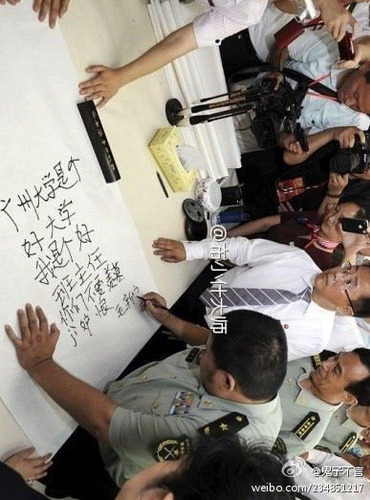 广州大学是个
好大学
我是个好
班主任
你们羡慕
恨 毛新宇
weibo.com/234851217